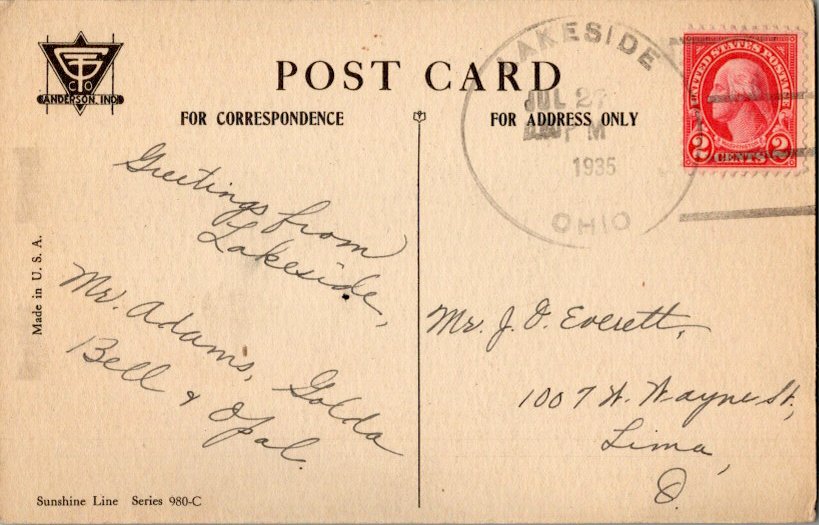 GT
CO
ANDERSON, IND
POST CARD
FOR CORRESPONDENCE
FOR ADDRESS ONLY
LAKESIDE
JUL 27
PM
1935
OHIO
UNITED STATES POSTAGE
WASHINGTON
2 CENTS 2
Greetings from
Lakeside,
Mr. Adams, Golda
Bell & Opal.
Mr. J. O. Everett,
1007 W. Wayne St.,
Lima,
O.
Made in U. S. A.
Sunshine Line Series 980-C